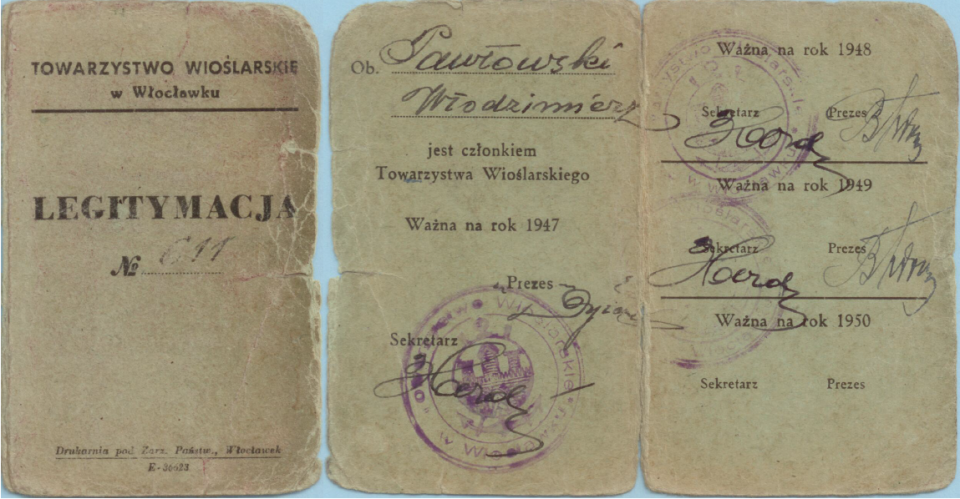 TOWARZYSTWO WIOŚLARSKIE
w Włocławku
LEGITYMACJA
№ 611
Drukarnia pod Zarz. Państw., Włocławek
E-36623
Ob. Pawłowski
Włodzimierz
jest członkiem
Towarzystwa Wioślarskiego
Ważna na rok 1947
Prezes
Sekretarz
Ważna na rok 1948
Sekretarz Prezes
Ważna na rok 1949
Sekretarz Prezes
Ważna na rok 1950
Sekretarz Prezes